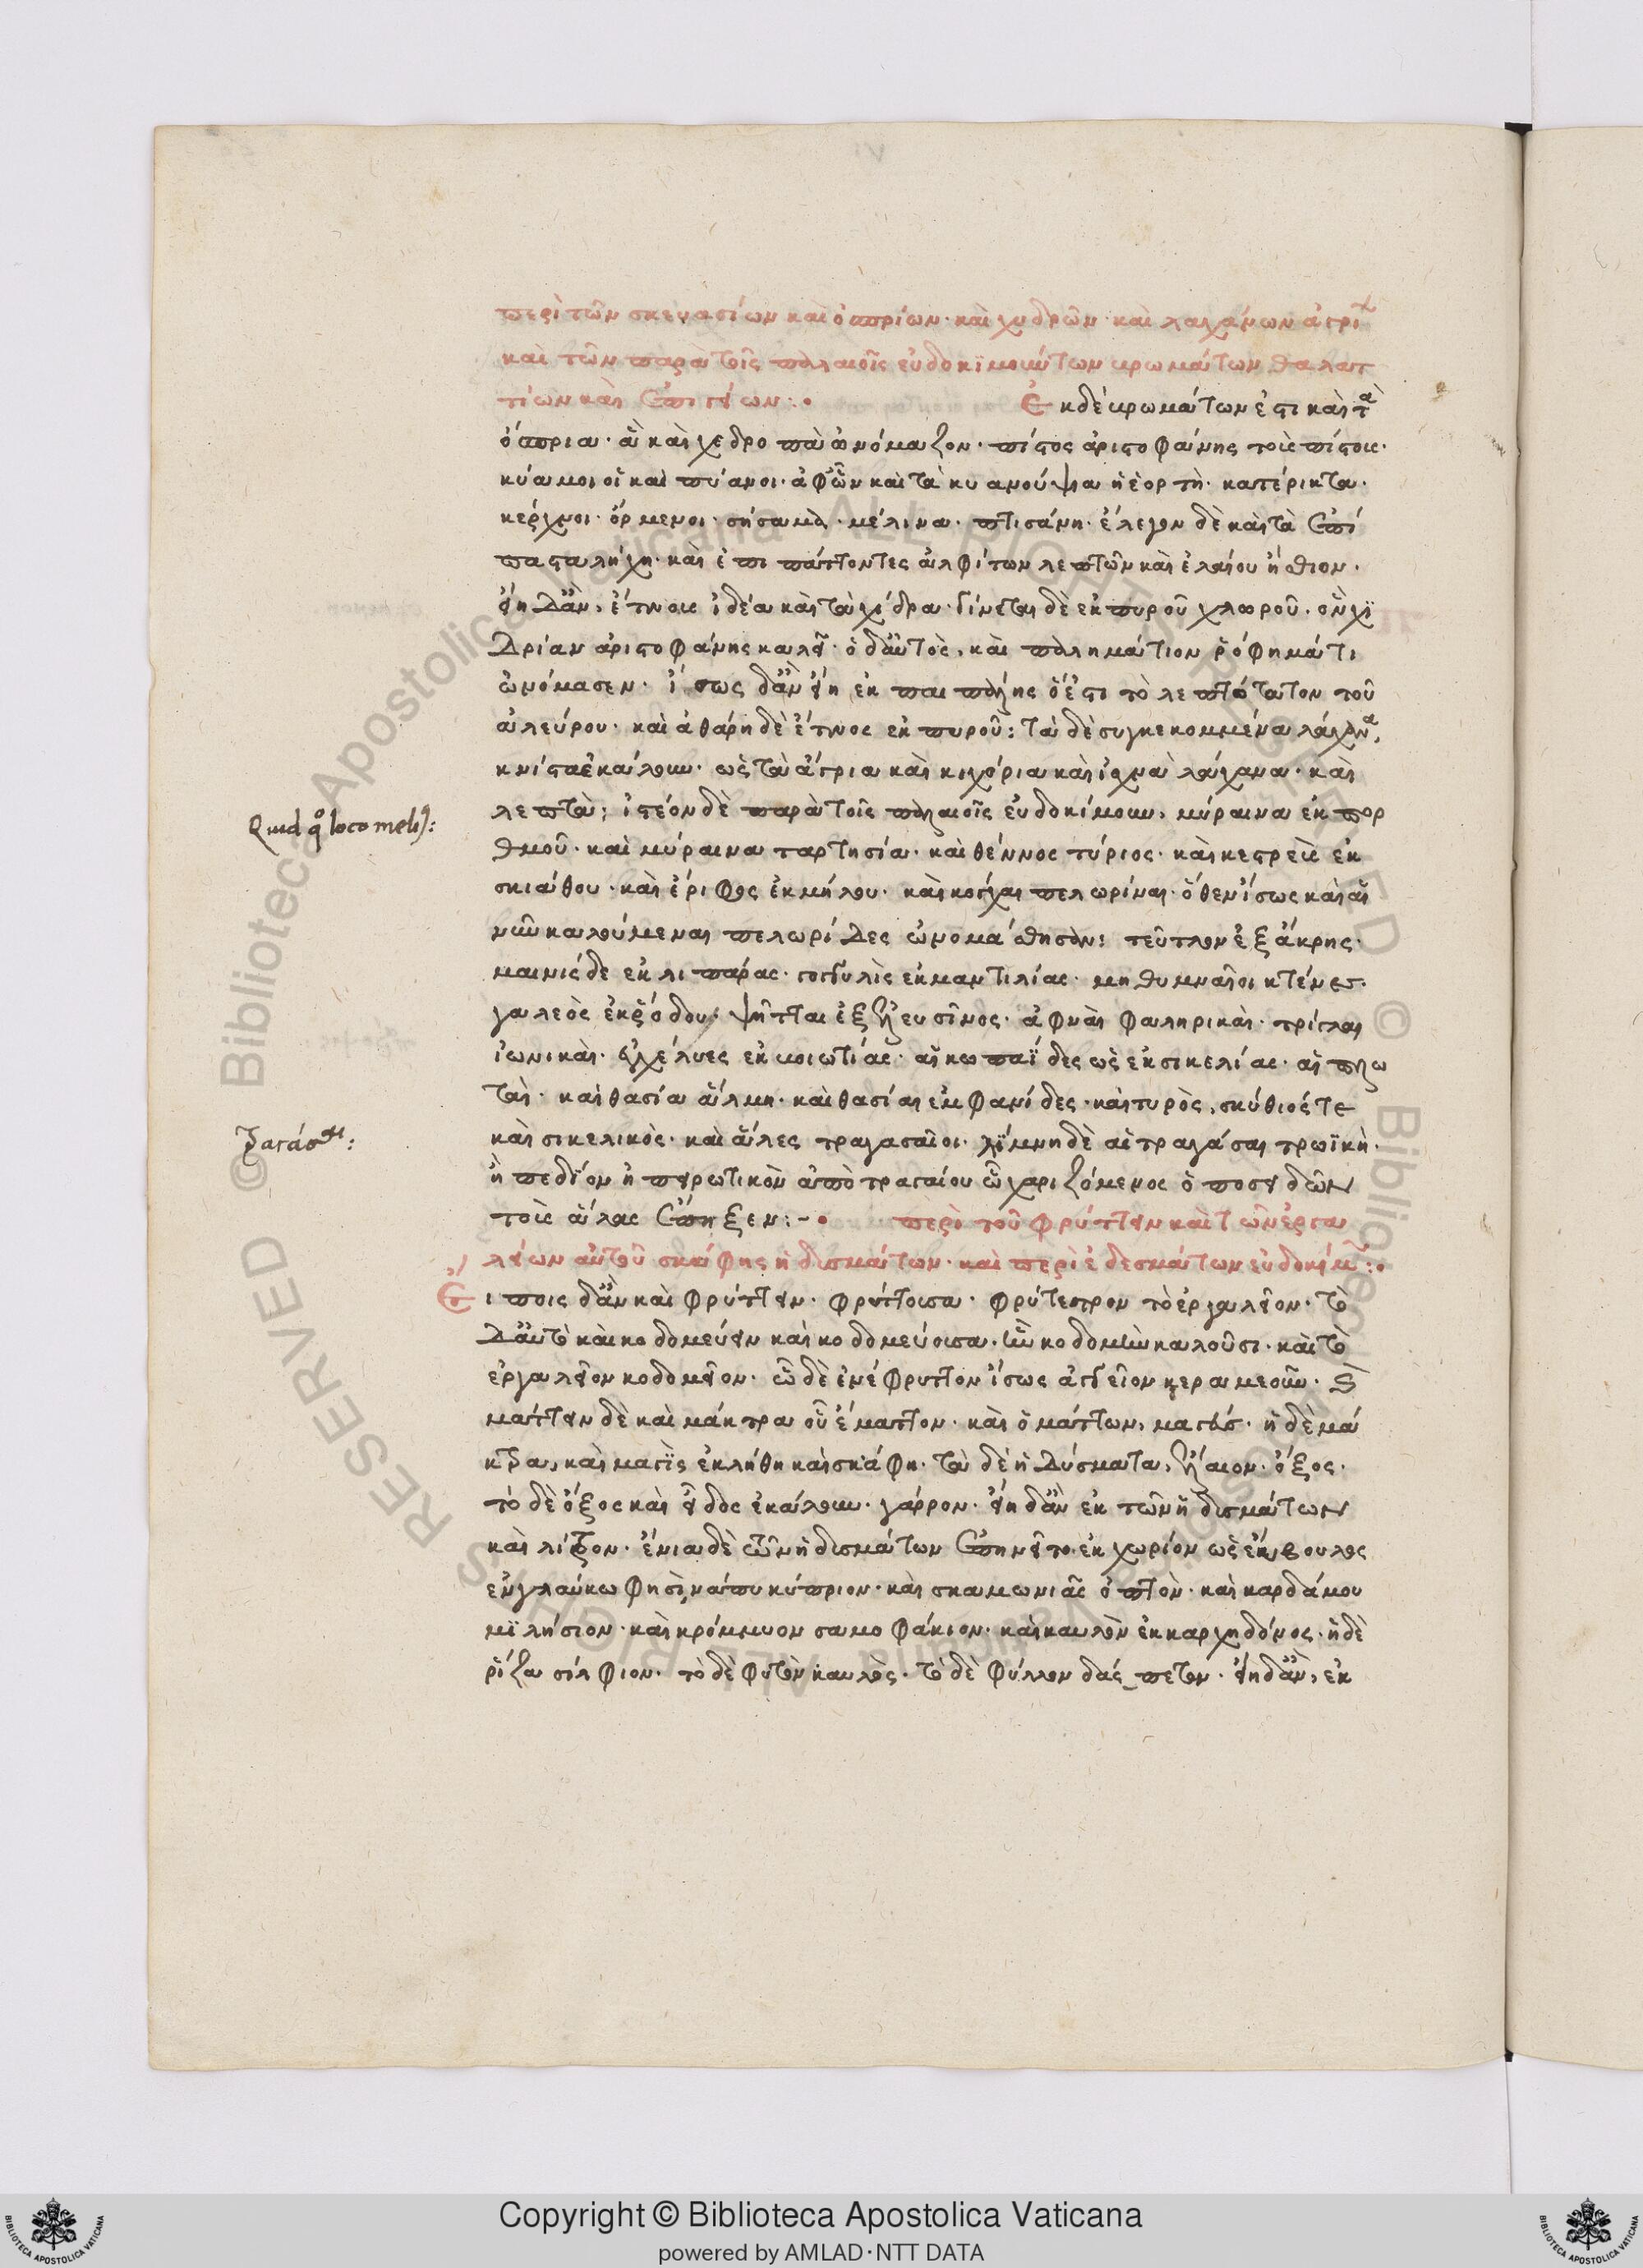 περὶ τῶν σκευασίων καὶ ὀσπρίων· καὶ χυδρῶν· καὶ λαχάνων ἀγρί
καὶ τῶν παρὰ τοῖς παλαιοῖς εὐδοκϊμούντων βρωμάτων θαλατ
τίων καὶ ἐπιγείων:·
Ἐκ δὲ βρωμάτων ἐστι καὶ τὰ
ὄσπρια· ἃ καὶ χεδροπὰ ὠνόμαζον· πίσος ἀριστοφάνης τοὺς πίσους·
κύαμοι οἳ καὶ πύανοι· ἀφ' ὧν καὶ τὰ κυανούψια ἡ ἑορτή· κατέρικτα·
κέρχνοι· ὅρμενοι· σήσαμα· μέλινα· πτισάνη· ἔλεγον δὲ καὶ τὰ ἐπί
παστα λήχη· καὶ ἐπιπάττοντες ἀλφίτων λεπτῶν καὶ ἐλαίου ἤσθιον·
εἴη δ' ἂν, ἔτνους ἰδέα καὶ τὰ χίδρα· γίνεται δὲ ἐκ πυροῦ χλωροῦ· ὃν χϊ
δρίαν ἀριστοφάνης καλεῖ· ὁ δ' αὐτὸς, καὶ παλημάτιον ῥόφημά τι
ὠνόμασεν· ἴσως δ' ἂν εἴη ἐκ παιπάλης ὅ ἐστι τὸ λεπτότατον τοῦ
ἀλεύρου· καὶ ἀθάρη δὲ ἔτνος ἐκ πυροῦ: τὰ δὲ συγκεκομμένα λάχανα,
κνίστα ἐκάλουν· ὡς τὰ ἄγρια καὶ κιχόρια καὶ ἰσχνὰ λάχανα· καὶ
λεπτά: ἰστέον δὲ παρὰ τοῖς παλαιοῖς εὐδοκίμουν, μύραινα ἐκ πορ
θμοῦ· καὶ μύραινα ταρτησία· καὶ θύννος τύριος· καὶ κεστρεὺς ἐκ
σκιάθου· καὶ ἔριφος ἐκ μήλου· καὶ κόγχαι πελωρίναι· ὅθεν ἴσως καὶ αἱ
νῦν καλούμεναι πελωρίδες ὠνομάσθησαν: τεῦτλον ἐξ ἄκρης·
μαινὶς δὲ ἐκ λιπάρας· γογγυλὶς ἐκ μαντιλίας· μηθυμναῖοι κτένες·
γαλεὸς ἐκ ῥόδου· ψῆτται ἐξ ἐλευσῖνος· ἀφύαι φαληρικαὶ· τρίγλαι
ἰωνικαὶ· ἐγχέλυες ἐκ βοιωτίας· ἃς κωπαΐδες ὡς ἐκ σικελίας· ἃς πλω
τάς· καὶ θασία ἅλμη· καὶ θασίαι ῥαφανίδες· καὶ τυρὸς, σκύθιός τε
καὶ σικελικὸς· καὶ ἅλες τραγασαῖοι· λίμνη δὲ αἱ τραγάσαι τρωϊκὴ·
ἢ πεδίον ἠπειρωτικὸν ἀπὸ τραγαίου ᾧ χαριζόμενος ὁ ποσειδῶν
τοὺς ἅλας ἔπηξεν:-·
περὶ τοῦ φρύττειν καὶ τῶν ἐργα
λείων αὐτοῦ σκάφης ἡδυσμάτων· καὶ περὶ ἐδεσμάτων εὐδοκίμ:·
Εἴποις δ' ἂν καὶ φρύττειν· φρύττουσα· φρύγετρον τὸ ἐργαλεῖον· τὸ
δ' αὐτὸ καὶ κοδομεύειν καὶ κοδομεύουσα· ἣν κοδομὴν καλοῦσι· καὶ τὸ
ἐργαλεῖον κοδομεῖον· ᾧ δὲ ἐνέφρυττον ἴσως ἀγγεῖον κεραμεοῦν·
μάττειν δὲ καὶ μάκτρα οὗ ἔματτον· καὶ ὁ μάττων, μαγεύς· ἡ δὲ μά
κτρα, καὶ μαγὶς ἐκλήθη καὶ σκάφη· τὰ δὲ ἡδύσματα, ἔλαιον· ὄξος·
τὸ δὲ ὄξος καὶ ἦδος ἐκάλουν· γάρρον· εἴη δ' ἂν ἐκ τῶν ἡδυσμάτων
καὶ λίτρον· ἔνια δὲ τῶν ἡδυσμάτων ἐπηνεῖτο ἐκ χωρίον ὡς εὔβουλος
ἐν γλαύκῳ φησὶ νάπυ κύπριον· καὶ σκαμωνίας ὀπτὸν· καὶ καρδάμου
μϊλήσιον· καὶ κρόμμυον σαμοθράκιον· καὶ καυλὸν ἐκ καρχηδόνος· ἡ δὲ
ῥίζα σίλφιον· τὸ δὲ φυτὸν καυλὸς· τὸ δὲ φύλλον δάσπετον· εἴη δ' ἂν, ἐκ
Quid qo loco melis:
Copyright © Biblioteca Apostolica Vaticana
powered by AMLAD·NTT DATA